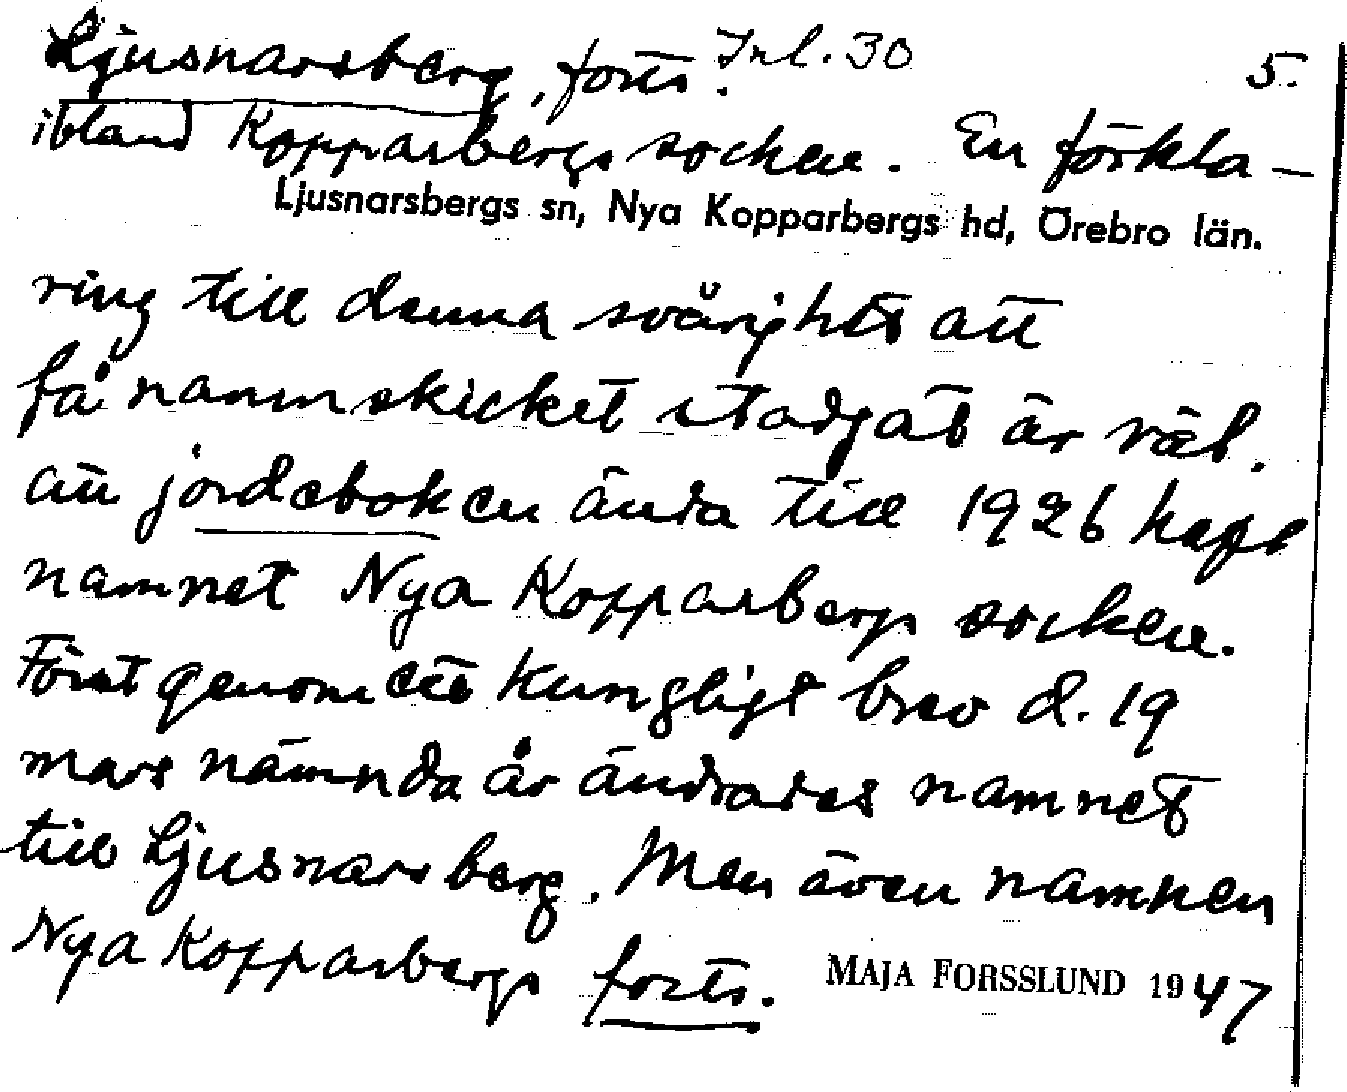 Ljusnarsberg, forts. Inl. 30 5.
ibland Kopparbergs socken. En förkla-
Ljusnarsbergs sn, Nya Kopparbergs hd, Örebro län.
ring till denna svårighet att
få namnskicket stadgat är väl.
att jordeboken ända till 1926 haft
namnet Nya Kopparbergs socken.
Först genom ett kungligt brev d. 19
mars nämnda år ändrades namnet
till Ljusnarsberg. Men även namnen
Nya Kopparbergs forts.
MAJA FORSSLUND 1947